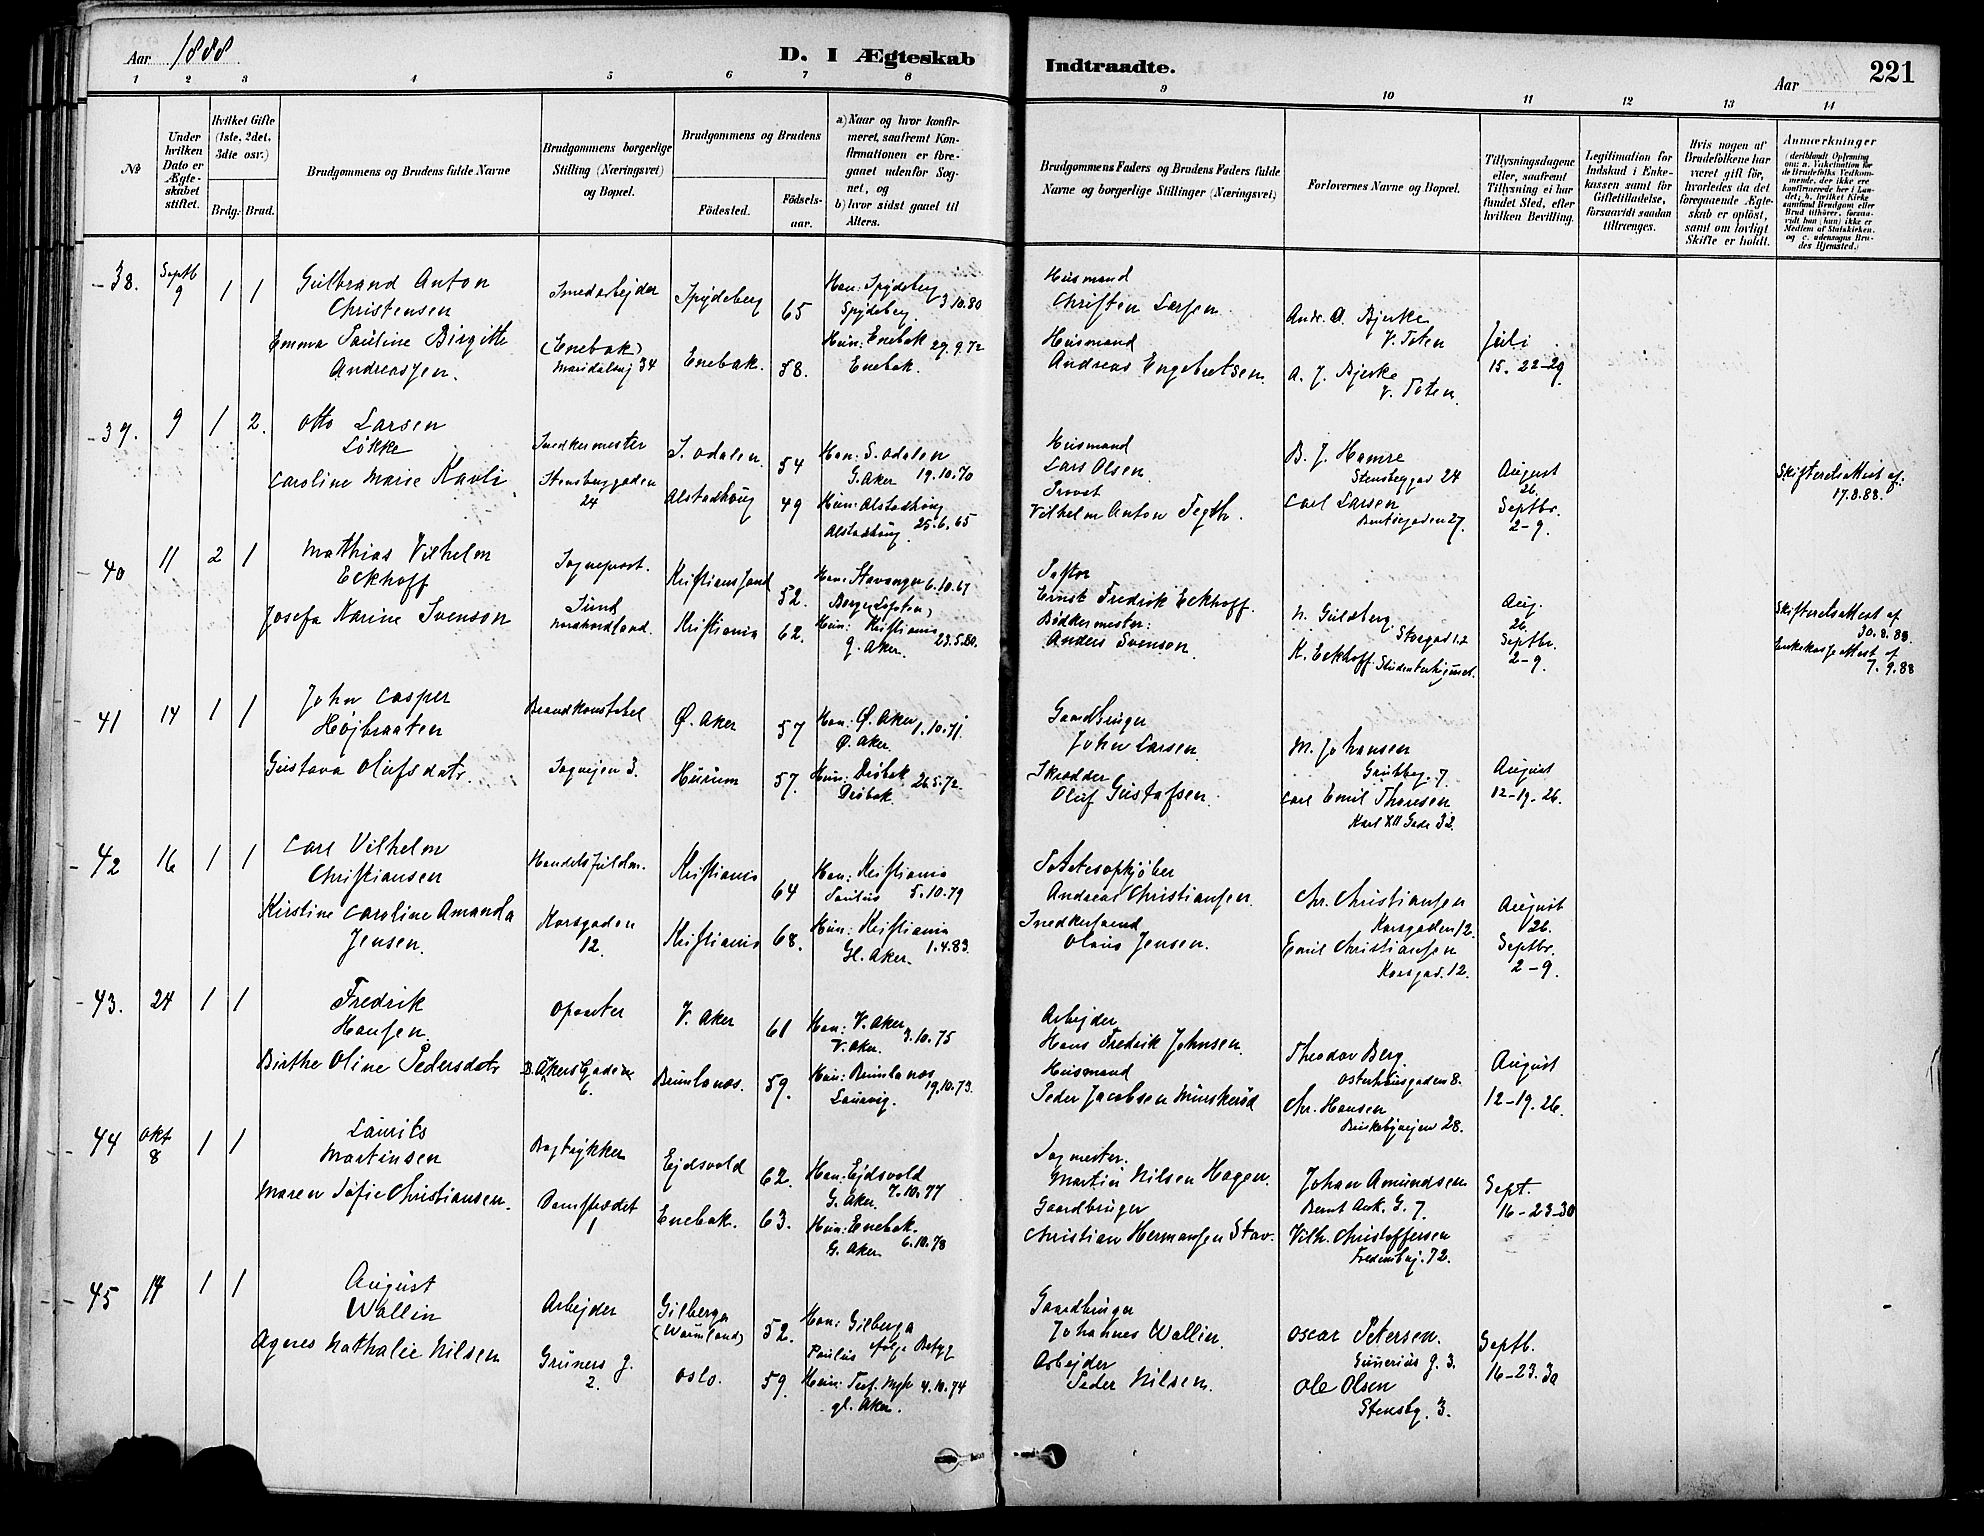 Aar 1888.
D. I Ægteskab Indtraadte.
Aar
221
1 2 3 4 5 6 7 8 9 10 11 12 13 14
No
Under hvilken Dato er Ægteskabet stiftet.
Hvilket Gifte (1ste, 2det, 3die osv.)
Brdg. Brud.
Brudgommens og Brudens fulde Navne
Brudgommens borgerlige Stilling (Næringsvei) og Bopæl.
Brudgommens og Brudens
Fødested.
Fødselsaar.
a) Naar og hvor konfirmeret, saafremt Konfirmationen er foregaaet udenfor Sognet, og
b) hvor sidst gaaet til Alters.
Brudgommens Faders og Brudens Faders fulde Navne og borgerlige Stillinger (Næringsvei)
Forlovernes Navne og Bopæl.
Tillysningsdagene eller, saafremt Tillysning ei har fundet Sted, efter hvilken Bevilling.
Legitimation for Indskud i Enkekassen samt for Giftetilladelse, forsaavidt saadan tiltrænges.
Hvis nogen af Brudefolkene har været gift før, hvorledes da det foregaaende Ægteskab er opløst, samt om lovligt Skifte er holdt.
Anmærkninger (deriblandt Oplysning om: a. Vakcination for de Brudefolks Vedkommende, der ikke ere konfirmerede her i Landet; b. hvilket Kirkesamfund Brudgom eller Brud tilhører, forsaavidt han (hun) ikke er Medlem af Statskirken, og c. udensogns Brudes Hjemsted.)
38. Septb 9 1 1
Gulbrand Anton
Christensen
Emma Pauline Birgitte
Andreassen.
Smedarbejder
(Enebak)
Maridalsvej 34
Spydeberg 65
Enebak. 58.
Han: Spydeberg 3.10.80
Spydeberg.
Hun: Enebak 29.9.72
Enebak.
Husmand
Christen Larsen
Husmand
Andreas Engebretsen.
Andr. A. Bjerke
V. Toten
A. J. Bjerke
V. Toten.
Juli
15. 22-29
39. 9 1 2.
Otto Larsen
Løkke
Caroline Marie Kavli
Snedkermester
Stensberggaden
24
S. Odalen. 54
Alstadhoug 49
Han: S. Odalen
G. Aker 19.10.70
Hun: Alstadhoug
Alstadhoug 25.6.65
Husmand
Lars Olsen
Provst
Vilhelm Anton
B. J. Hamre
Stensberggad 24
Carl Larsen
27.
August
26.
Septbr.
2-9.
Skifteretsattest af:
17.8.88.
40 11 2 1
Mathias Vilhelm
Eckhoff
Josefa Karine Svenson
Sognepræst.
Sund
Nordhordland.
Kristianssand 52.
Kristiania 62.
Han: Stavanger 6.10.67
Hun: Kristiania
G. Aker. 23.5.80.
Pastor
Ernst Fredrik Eckhoff.
Bødkermester:
Anders Svenson
N. Guldberg
Storgad 12
K. Eckhoff Studenterhjemmet.
Aug.
26
Septbr.
2-9.
Skifteretsattest af
30.8.88.
Enkekasseattest af
7.9.88
41 14 1 1
John Casper
Højbraaten
Gustava Olufsdatr.
Brandkonstabel
Sognvejen 3.
Ø. Aker 57
Hurum 57.
Han: Ø. Aker 1.10.71.
Ø. Aker.
Hun: Drøbak 26.5.72.
Drøbak.
Gaardbruger
John Larsen
Skrædder
Oluf Gustafsen.
M. Johansen
Grubbeg. 7
Carl Emil Thoresen
Karl XII Gade 32.
August
12-19-26.
42 16 1 1
Carl Vilhelm
Christiansen
Kirstine Caroline Amanda
Jensen.
Handelsfuldm.
Korsgaden
12.
Kristiania 64
Kristiania 68.
Han: Kristiania
Paulus 5.10.79
Hun: Kristiania
Gl. Aker. 1.4.83.
Andreas Christiansen.
Snedkersvend
Olaus Jensen.
Chr. Christiansen
Korsgaden 12.
Emil Christiansen
Korsgad. 12.
August
26.
Septbr.
2-9.
43. 24 1 1
Fredrik
Hansen.
Birthe Oline Pedersdatr
Opvarter
Akers Gaden
6.
V. Aker 61
Brunlanæs. 59.
Han: V. Aker 3.10.75
V. Aker.
Hun: Brunlanæs
19.10.73.
Laurvig.
Arbejder
Hans Fredrik Johnsen.
Husmand
Peder Jacobsen Munskerød
Theodor Berg.
Osterhausgaden 8.
Chr. Hansen
28.
August
12-19.26.
44 Okt 8 1 1
Laurits
Martinsen
Maren Sofie Christiansen.
Bogtrykker
Damstrædet
1
Ejdsvold 62.
Enebak. 63.
Han: Ejdsvold
G. Aker. 7.10.77
Hun: Enebak.
G. Aker 6.10.78
Sagmester.
Martin Nilsen Hagen.
Gaardbruger
Christian Hermansen Stav.
Johan Amundsen
Bernt Ank. G. 7.
Vilh. Christoffersen
Fredensbgvj. 72.
Sept.
16-23-30
45 14 1 1
August
Wallin
Agnes Nathalie Nilsen
Arbejder
Grüners g.
2.
Gilberga
(Wermland) 52.
Oslo. 59.
Han: Gilberga
Paulus
Hun: 4.10.74
gl. Aker.
Gaardbruger
Johannes Wallin.
Arbejder
Peder Nilsen.
Oscar Petersen.
Gunerius g. 3.
Ole Olsen
Stensbg. 3.
Septb.
16-23.30